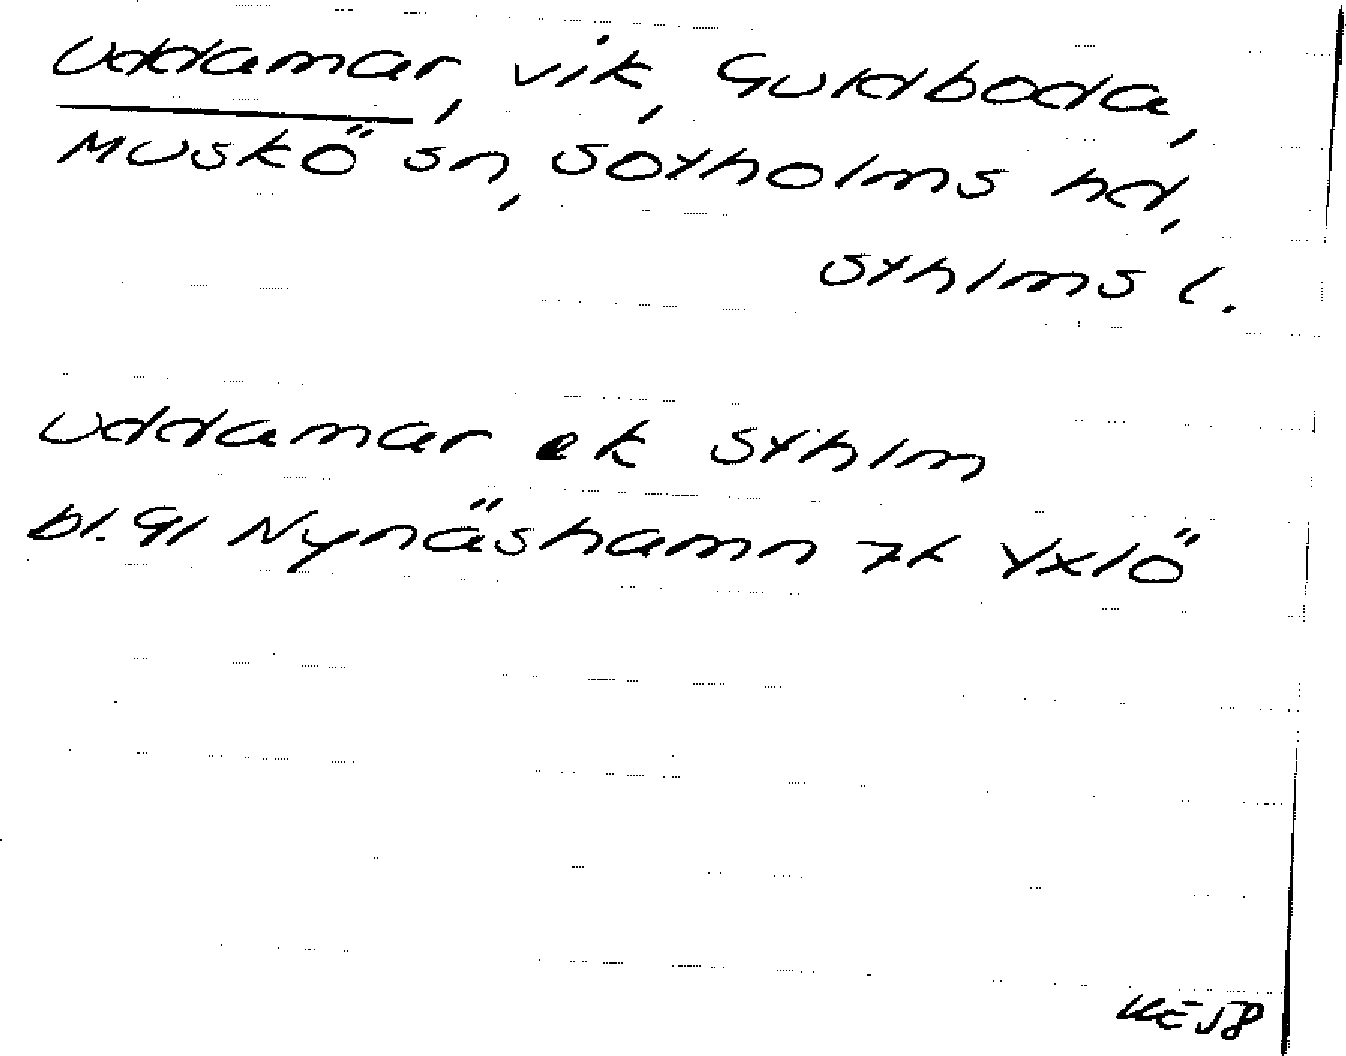 Uddamar, vik, Guldboda,
Muskö sn, Sotholms hd,
Sthlms l.
Uddamar ek Sthlm
bl. 91 Nynäshamn Yxlö